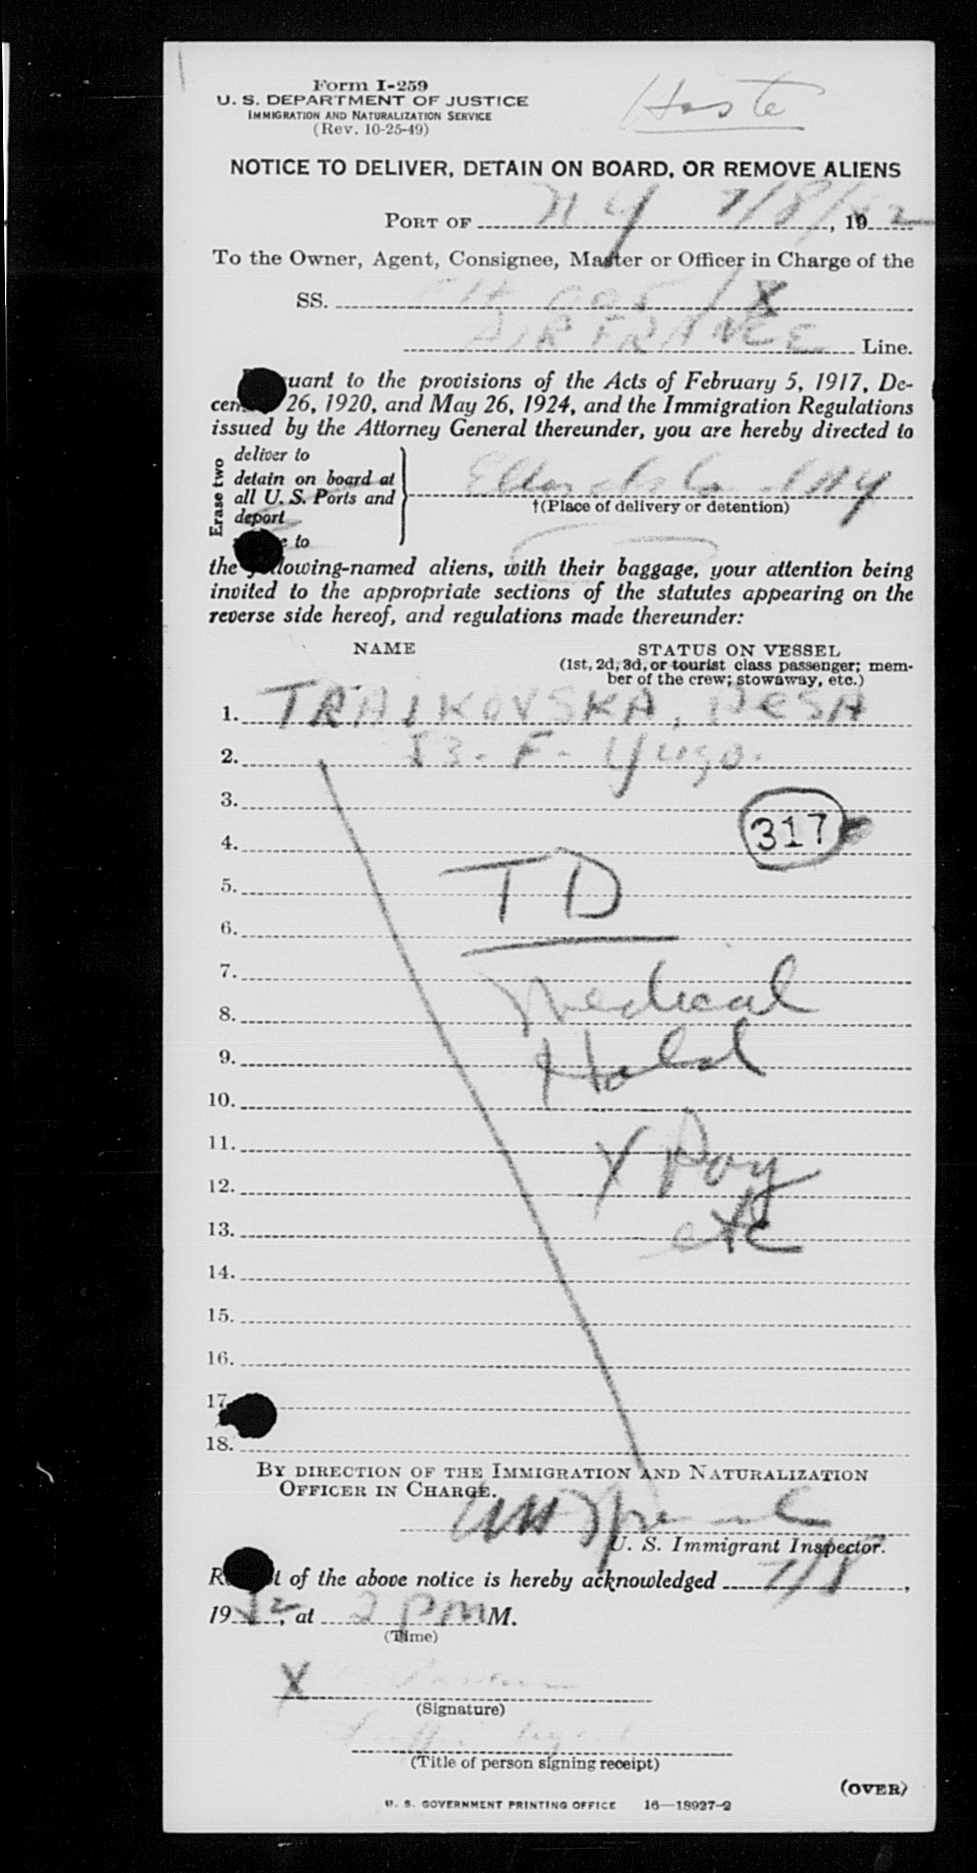 Form I-259
U. S. DEPARTMENT OF JUSTICE
IMMIGRATION AND NATURALIZATION SERVICE
(Rev. 10-25-49)
NOTICE TO DELIVER, DETAIN ON BOARD, OR REMOVE ALIENS
PORT OF N Y 7/8/, 1952
To the Owner, Agent, Consignee, Master or Officer in Charge of the
SS. X
AIR FRANCE Line.
uant to the provisions of the Acts of February 5, 1917, De-
cem 26, 1920, and May 26, 1924, and the Immigration Regulations
issued by the Attorney General thereunder, you are hereby directed to
Erase two
deliver to
detain on board at
all U. S. Ports and
deport
e to
Ellis Is NY
†(Place of delivery or detention)
the lowing-named aliens, with their baggage, your attention being
invited to the appropriate sections of the statutes appearing on the
reverse side hereof, and regulations made thereunder:
NAME STATUS ON VESSEL
(1st, 2d, 3d, or tourist class passenger; mem-
ber of the crew; stowaway, etc.)
1. TRAIKOVSKA, DESA
2. 53 - F - Yugo.
3.
317
4.
5. TD
6.
7. Medical
8.
9. Hold
10.
11. X Ray
12.
13. etc
14.
15.
16.
17.
18.
BY DIRECTION OF THE IMMIGRATION AND NATURALIZATION
OFFICER IN CHARGE.
U. S. Immigrant Inspector.
R t of the above notice is hereby acknowledged 7/8,
1952, at 2 pm M.
(Time)
X
(Signature)
(Title of person signing receipt)
(OVER)
U. S. GOVERNMENT PRINTING OFFICE 16—18927-2